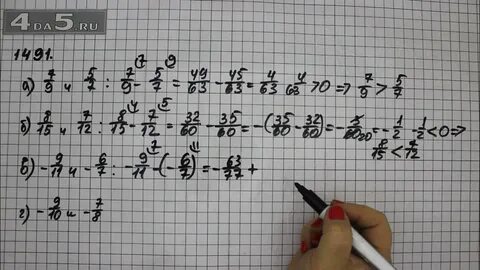 4DA5.RU
1491.
а) 7/9 и 5/7 : 7/9 (7 - 5/7 (9 = 49/63 - 45/63 = 4/63 4/63 > 0 => 7/9 > 5/7
б) 8/15 и 7/12 : 8/15 (4 - 7/12 (5 = 32/60 - 35/60 = -(35/60 - 32/60) = -3/60 20 = -1/2 -1/2 < 0 =>
8/15 < 7/12
в) -9/11 и -6/7 : -9/11 (7 - (-6/7) (11 = -63/77 +
г) -9/10 и -7/8